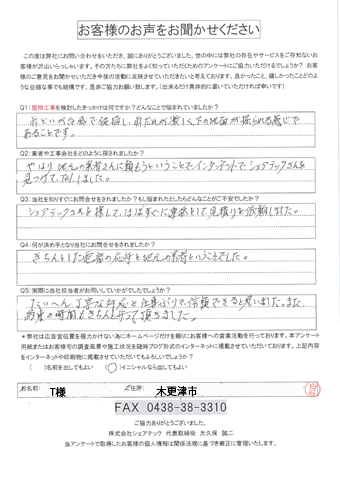 お客様のお声をお聞かせください
この度は弊社にお問い合わせをいただき、誠にありがとうございました。世の中には弊社の存在やサービスをご存知ないお
客様が沢山いらっしゃいます。その方に弊社をよく知っていただくためのアンケートにご協力いただけるでしょうか？ お客
様のご意見をお聞かせいただき今後の活動に反映させていただきたいと考えております。良かったこと、嬉しかったことどのよ
うな些細な事でも結構です。是非ご協力お願い致します。(出来るだけ具体的に書いていただければ幸いです)
Q1:屋根工事を検討したきっかけは何ですか？どんなことで悩まれていましたか？
雨といが台風で破損し、雨だれが激しく下の地面が掘られる感じで
あることです。
Q2:業者や工事会社をどのように探されましたか？
やはり地元の業者さんに頼もうということで、インターネットでシェアテックさんを
見つけて、TELしました。
Q3:当社を知りすぐにお問合せをされましたか？もし悩まれたとしたらどんなことがご不安でしたか？
シェアテックさんを探して、ほぼすぐに連絡をして見積りを依頼しました。
Q4:何が決め手となり当社にお問合せをされましたか？
きちんとした電話の応対と地元の業者ということでした。
Q5:実際に当社担当者がお伺いしていかがでしたでしょうか？
たいへん丁寧な対応と仕事ぶりで信頼できると思いました。また、
約束の時間もきちんと守って頂きました。
＊弊社は広告宣伝費を極力かけない為にホームページだけを頼りにお客様への営業活動を行っております。本アンケート
用紙またはお客様宅の調査風景や施工状況を随時ブログ形式のインターネットに掲載させていただいております。上記内容
をインターネットや印刷物に掲載させていただいてもよろしいでしょうか？
( )名前を出してもよい (○)イニシャルなら出してもよい
お名前: T様 ご住所: 木更津市
FAX 0438-38-3310
ご協力ありがとうございました。
株式会社シェアテック 代表取締役 大久保 誠二
当アンケートで取得したお客様の個人情報は関係法規に基づき厳正に管理いたします。